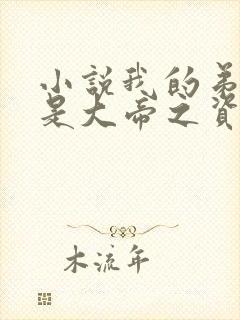 小説我的弟
是大帝之資
木流年